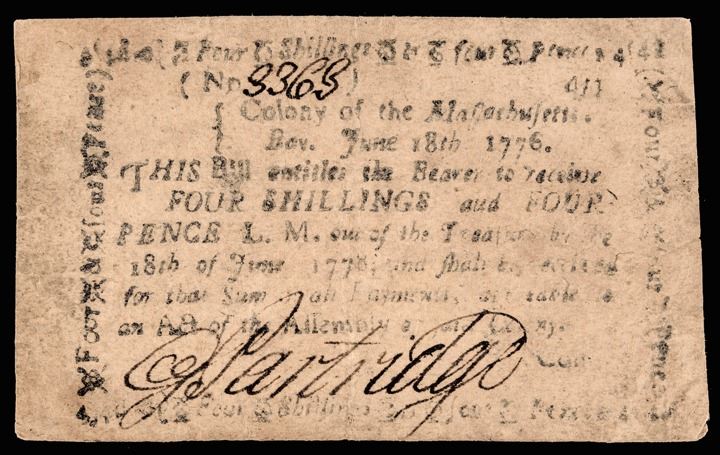 Four Shillings & four Pence
(No 3363)
4/4
Colony of the Maſſachuſetts.
Bay. June 18th 1776.
THIS Bill entitles the Bearer to receive
FOUR SHILLINGS and FOUR
PENCE L. M. out of the Treaſury by the
18th of June 1778, and ſhall be received
for that Sum in all Payments, agreeable to
an Act of the Aſſembly of Colony.
Partridge
Com
Four Shillings & four Pence
Four & four Pence
Four Pence